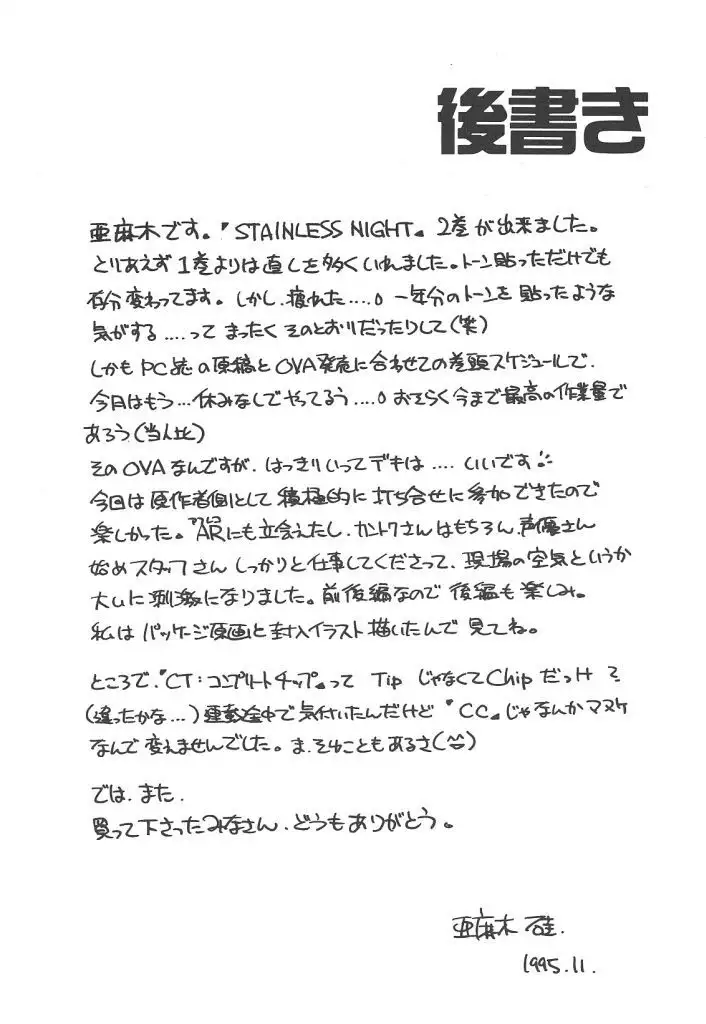 後書き
亜麻木です。『STAINLESS NIGHT』2巻が出来ました。
とりあえず1巻よりは直しを多くいれました。トーン貼っただけでも
百分変わってます。しかし、疲れた....。一年分のトーンを貼ったような
気がする....って まったくそのとおりだったりして(笑)
しかもPC誌の原稿とOVA発売に合わせての巻頭スケジュールで、
今月はもう...休みなしでやってるう....。おそらく今まで最高の作業量で
あろう(当人比)
そのOVAなんですが、はっきりいってデキは....いいです
今回は原作者側として積極的に打ち合せに参加できたので
楽しかった。アフレコ ARにも立会えたし、カントクさんはもちろん、声優さん
始めスタッフさんしっかりと仕事してくださって、現場の空気というか
大いに刺激になりました。前後編なので後編も楽しみ。
私はパッケージ原画と封入イラスト描いたんで見てね。
ところで、『CT:コンプリートチップ』って TipじゃなくてChipだっけ?
(違ったかな...)運転途中で気付いたんだけど『CC』じゃなんかマヌケ
なんで変えませんでした。ま、そんなこともあるさ(^^)
では、また、
買って下さったみなさん、どうもありがとう。
亜麻木 硅.
1995.11.